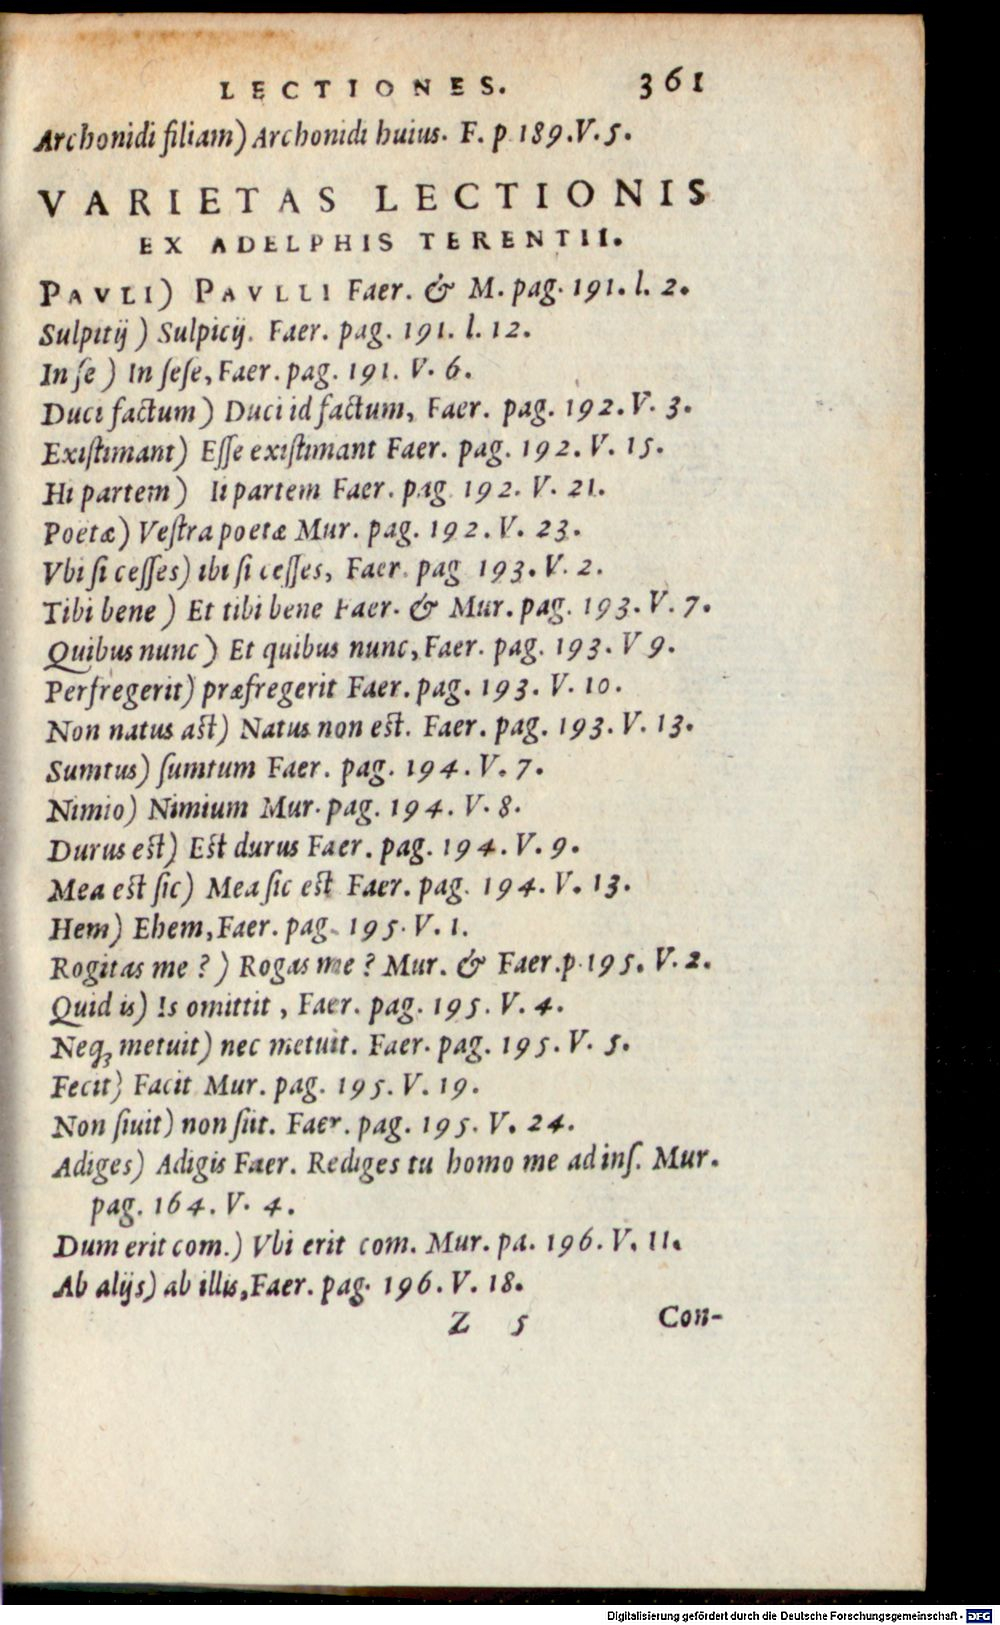 LECTIONES. 361
Archonidi filiam) Archonidi huius. F. p 189. V. 5.
VARIETAS LECTIONIS
EX ADELPHIS TERENTII.
PAVLI) PAVLLI Faer. & M. pag. 191. l. 2.
Sulpitij) Sulpicij. Faer. pag. 191. l. 12.
In ſe) In ſeſe, Faer. pag. 191. V. 6.
Duci factum) Duci id factum, Faer. pag. 192. V. 3.
Exiſtimant) Eſſe exiſtimant Faer. pag. 192. V. 15.
Hi partem) Ii partem Faer. pag 192. V. 21.
Poëtæ) Veſtra poetæ Mur. pag. 192. V. 23.
Vbi ſi ceſſes) ibi ſi ceſſes, Faer. pag 193. V. 2.
Tibi bene) Et tibi bene Faer. & Mur. pag. 193. V. 7.
Quibus nunc) Et quibus nunc, Faer. pag. 193. V 9.
Perfregerit) præfregerit Faer. pag. 193. V. 10.
Non natus aſt) Natus non eſt. Faer. pag. 193. V. 13.
Sumtus) ſumtum Faer. pag. 194. V. 7.
Nimio) Nimium Mur. pag. 194. V. 8.
Durus eſt) Eſt durus Faer. pag. 194. V. 9.
Mea eſt ſic) Mea ſic eſt Faer. pag. 194. V. 13.
Hem) Ehem, Faer. pag. 195. V. 1.
Rogitas me?) Rogas me? Mur. & Faer. p. 195. V. 2.
Quid is) Is omittit, Faer. pag. 195. V. 4.
Neq; metuit) nec metuit. Faer. pag. 195. V. 5.
Fecit) Facit Mur. pag. 195. V. 19.
Non ſiuit) non ſiit. Faer. pag. 195. V. 24.
Adiges) Adigis Faer. Rediges tu homo me ad inſ. Mur.
pag. 164. V. 4.
Dum erit com.) Vbi erit com. Mur. pa. 196. V. 11.
Ab alijs) ab illis, Faer. pag. 196. V. 18.
Z 5 Con-
Digitalisierung gefördert durch die Deutsche Forschungsgemeinschaft - DFG